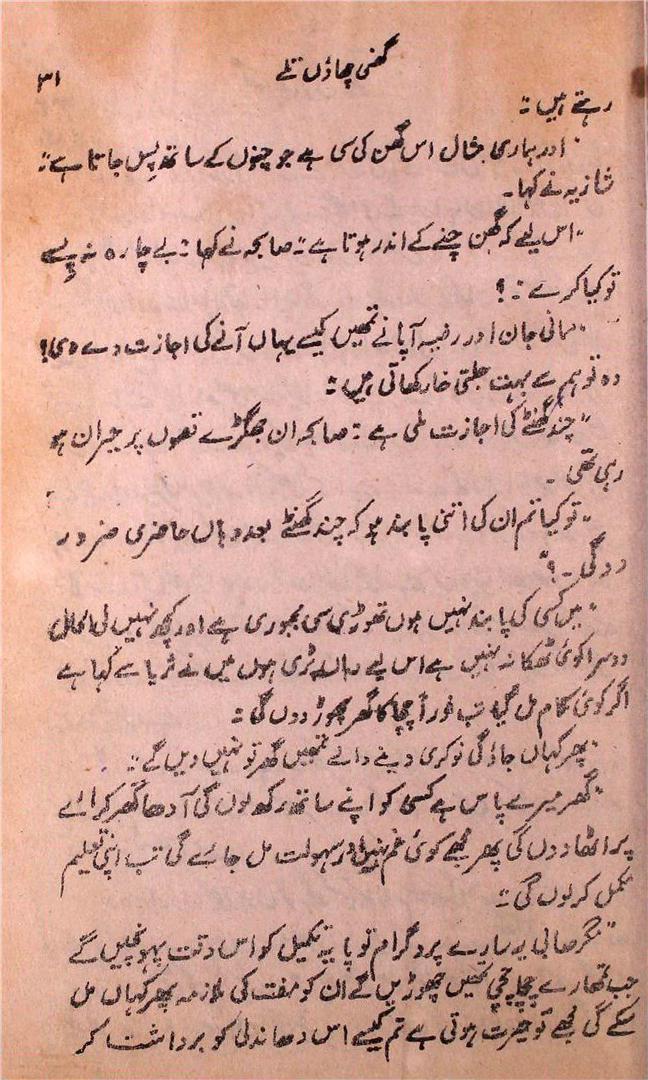 گھنی چھاؤں تلے
۳۱
رہتے ہیں :"
"اور ہماری مثال اس گھن کی سی ہے جو چنوں کے ساتھ پس جاتا ہے :"
شازیہ نے کہا ۔
"اس لیے کہ گھن چنے کے اندر ہوتا ہے :" صابحہ نے کہا : بے چارہ نہ پسے
تو کیا کرے :؟
"ممانی جان اور رضیہ آپا نے تمہیں کیسے یہاں آنے کی اجازت دے دی!
وہ تو ہم سے بہت جلتی خار کھاتی ہیں :"
"چند گھنٹے کی اجازت ملی ہے :" صابحہ ان جھگڑے قصوں پر حیران ہو
رہی تھی ۔
"تو کیا تم ان کی اتنی پابند ہو کہ چند گھنٹے بعد وہاں حاضری ضرور
دو گی ۔؟"
"میں کسی کی پابند نہیں ہوں تھوڑی سی مجبوری ہے اور کچھ نہیں فی الحال
دوسرا کوئی ٹھکانہ نہیں ہے اس لیے وہاں پڑی ہوں میں نے ثریا سے کہا ہے
اگر کوئی کام مل گیا تب فوراً چچا کا گھر چھوڑ دوں گی :"
"پھر کہاں جاؤ گی نوکری دینے والے تمہیں گھر تو نہیں دیں گے :"
"گھر میرے پاس ہے کسی کو اپنے ساتھ رکھ لوں گی آدھا گھر کرائے
پر اٹھا دوں گی پھر مجھے کوئی غم نہیں اور سہولت مل جائے گی تب اپنی تعلیم
مکمل کر لوں گی :"
"مگر صابی یہ سارے پروگرام تو پایہ تکمیل کو اس وقت پہونچیں گے
جب تمہارے چچا چچی تمہیں چھوڑیں گے ان کو مفت کی ملازمہ پھر کہاں مل
سکے گی مجھے تو حیرت ہوتی ہے تم کیسے اس دھاندلی کو برداشت کر